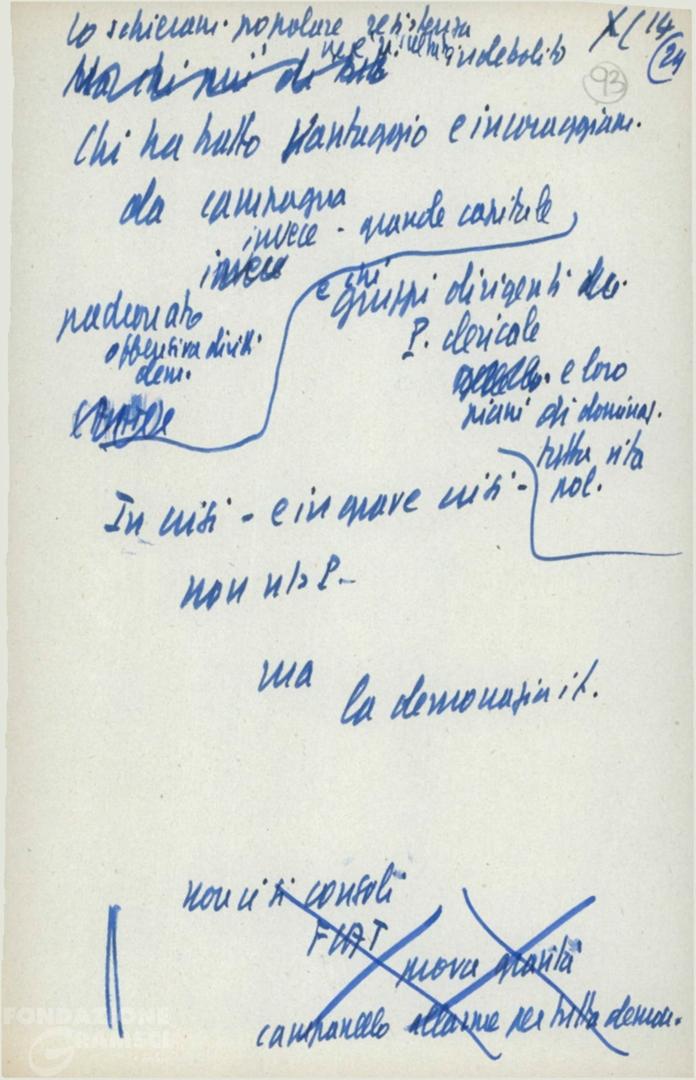 X/14
24
93
Lo schieram. popolare resistenza
ne è risultato indebolito
Chi ha tratto vantaggio e incoraggiam.
da campagna
invece - grande capitale
invece
e chi
gruppi dirigenti
padronato
offensiva diritti
dem.
P. clericale
e loro
piani di dominaz.
tutta vita
pol.
In crisi - e in grave crisi -
non ns P.
ma
la democrazia it.
non ci si consoli
FIAT
prova gravità
campanello allarme per tutta democr.
FONDAZIONE
GRAMSCI